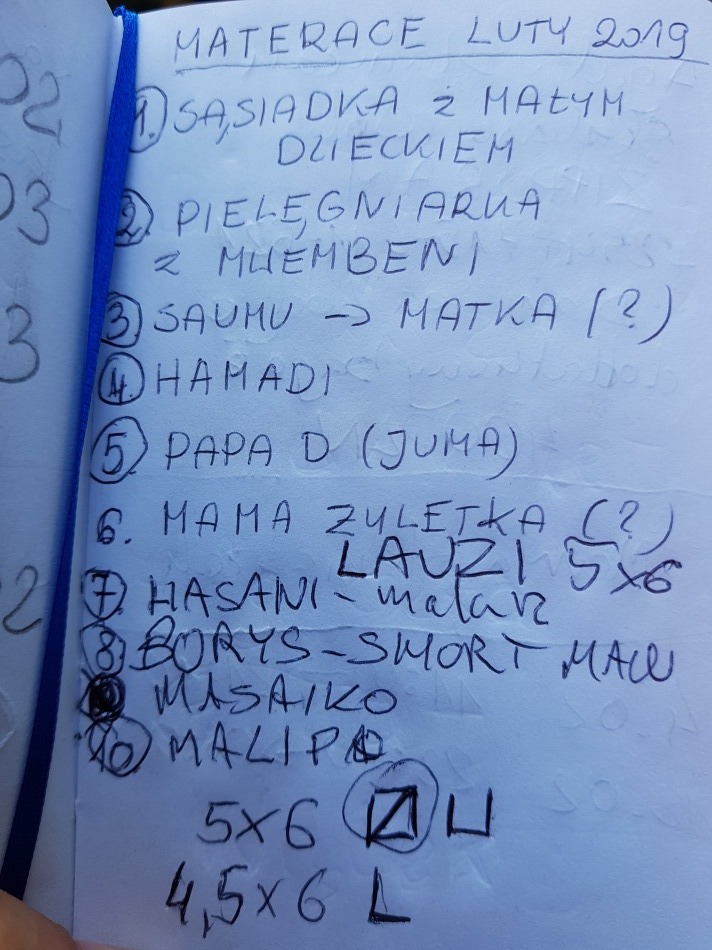 02
03
3
2
MATERACE LUTY 2019
1. SĄSIADKA Z MAŁYM
DZIECKIEM
2. PIELĘGNIARKA
Z MWEMBENI
3 SAUMU -> MATKA (?)
4. HAMADI
5 PAPA D (JUMA)
6. MAMA ZULETKA (?)
LAUZI 5x6
7. HASANI - malarz
8. BORYS - SMORT
MASAIKO
10 MALIPO
5x6
4,5x6